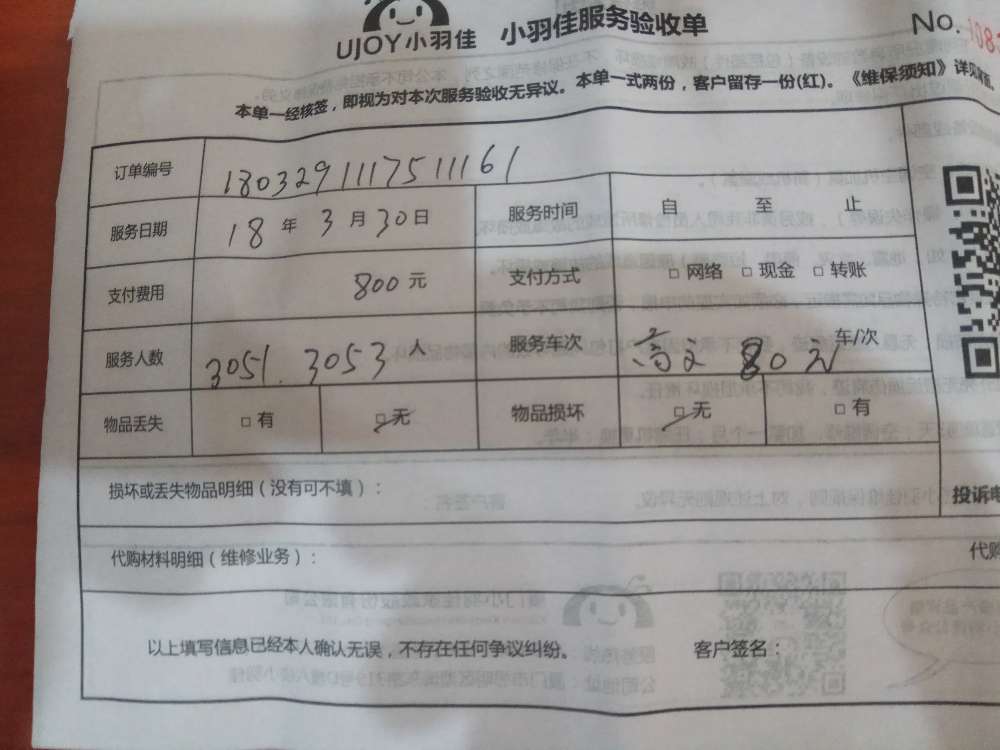 UJOY小羽佳 小羽佳服务验收单 No.
本单一经核签，即视为对本次服务验收无异议。本单一式两份，客户留存一份(红)。《维保须知》详见背面。
订单编号 1803291117511161
服务日期 18年3月30日 服务时间 自 至 止
支付费用 800元 支付方式 □网络 □现金 □转账
服务人数 3051.3053人 服务车次 80元 车/次
物品丢失 □有 □无 物品损坏 □无 □有
损坏或丢失物品明细（没有可不填）：
投诉电
代购材料明细（维修业务）： 代购
以上填写信息已经本人确认无误，不存在任何争议纠纷。 客户签名：